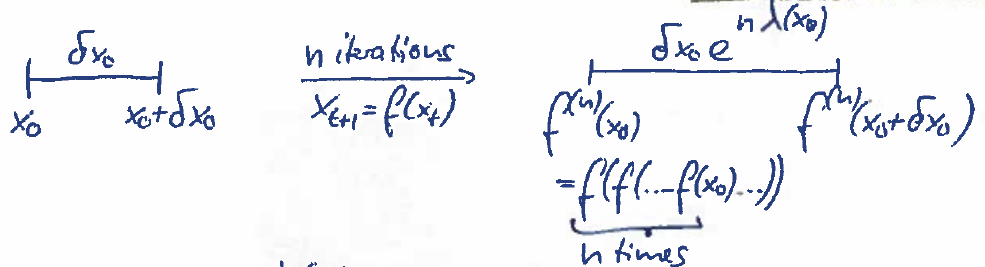 δx₀
x₀ x₀+δx₀
n iterations
xₜ₊₁=f(xₜ)
δx₀ e^{nλ(x₀)}
f^{(n)}(x₀) f^{(n)}(x₀+δx₀)
=f(f(...f(x₀)...))
n times